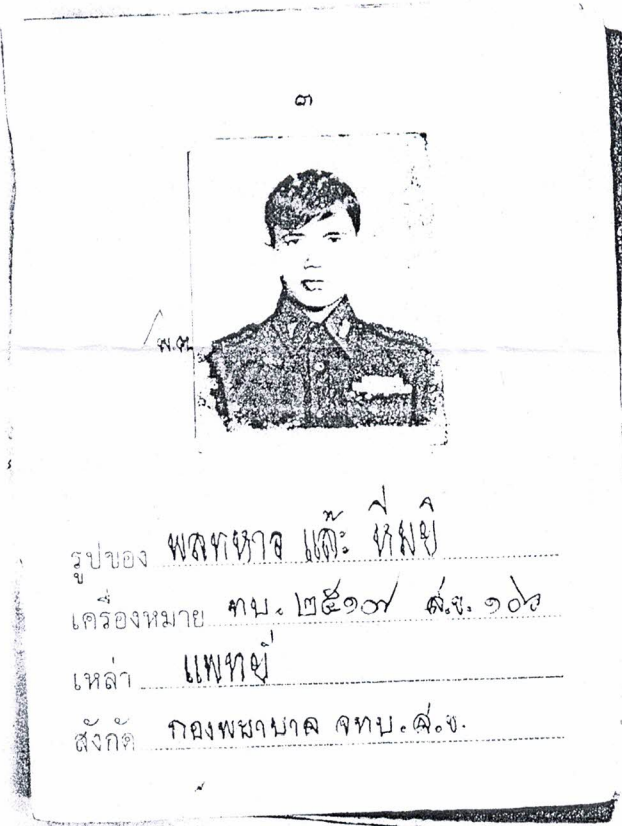 ๓
พ.ต.
รูปของ พลทหาร แต๊ะ หีมยิ
เครื่องหมาย ทบ. ๒๕๑๗ ส.ข. ๑๐๖
เหล่า แพทย์
สังกัด กองพยาบาล จทบ.ส.ข.